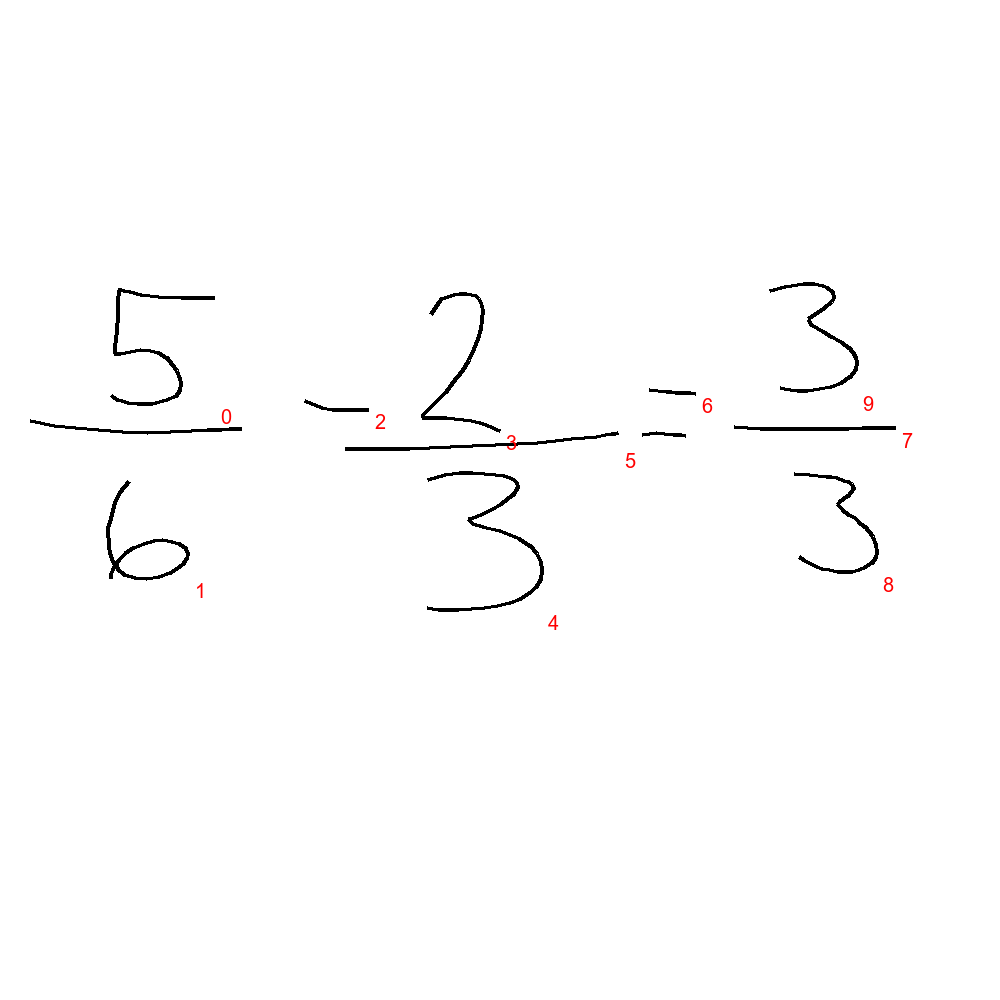 5/6 - 2/3 = 3/3
0 1 2 3 4 5 6 7 8 9